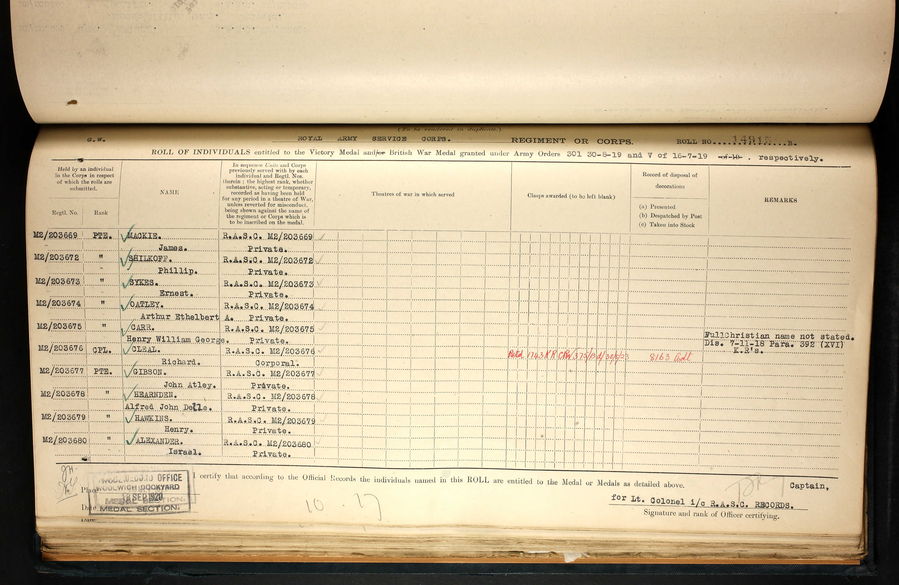 (To be rendered in duplicate.)
G.W. ROYAL ARMY SERVICE CORPS. REGIMENT OR CORPS. ROLL NO. B.
ROLL OF INDIVIDUALS entitled to the Victory Medal and/or British War Medal granted under Army Orders 301 30-8-19 and V of 16-7-19 of 19 . respectively.
Held by an individual in the Corps in respect of which the rolls are submitted.
Regtl. No. Rank
NAME
In sequence Units and Corps previously served with by each individual and Regtl. Nos. therein; the highest rank, whether substantive, acting or temporary, recorded as having been held for any period in a theatre of War, unless reverted for misconduct, being shown against the name of the regiment or Corps which is to be inscribed on the medal.
Theatres of war in which served
Clasps awarded (to be left blank)
Record of disposal of decorations
(a) Presented
(b) Despatched by Post
(c) Taken into Stock
REMARKS
M2/203669 PTE. MACKIE. R.A.S.C. M2/203669
James. Private.
M2/203672 " SHILKOFF. R.A.S.C. M2/203672
Phillip. Private.
M2/203673 " SYKES. R.A.S.C. M2/203673
Ernest. Private.
M2/203674 " OATLEY. R.A.S.C. M2/203674
Arthur Ethelbert A. Private.
M2/203675 " CARR. R.A.S.C. M2/203675
Henry William George. Private. FullChristian name not stated.
M2/203676 CPL. CLEAL. R.A.S.C. M2/203676 Dis. 7-11-18 Para. 392 (XVI) K.R's.
Richard. Corporal.
M2/203677 PTE. GIBSON. R.A.S.C. M2/203677
John Atley. Private.
M2/203678 " HEARNDEN. R.A.S.C. M2/203678
Alfred John Delle. Private.
M2/203679 " HAWKINS. R.A.S.C. M2/203679
Henry. Private.
M2/203680 " ALEXANDER. R.A.S.C. M2/203680
Israel. Private.
I certify that according to the Official Records the individuals named in this ROLL are entitled to the Medal or Medals as detailed above.
Captain,
for Lt. Colonel i/c R.A.S.C. RECORDS.
Signature and rank of Officer certifying.
Place
Date
OFFICE
WOOLWICH DOCKYARD
SEP 1920
MEDAL SECTION.
10 . 17